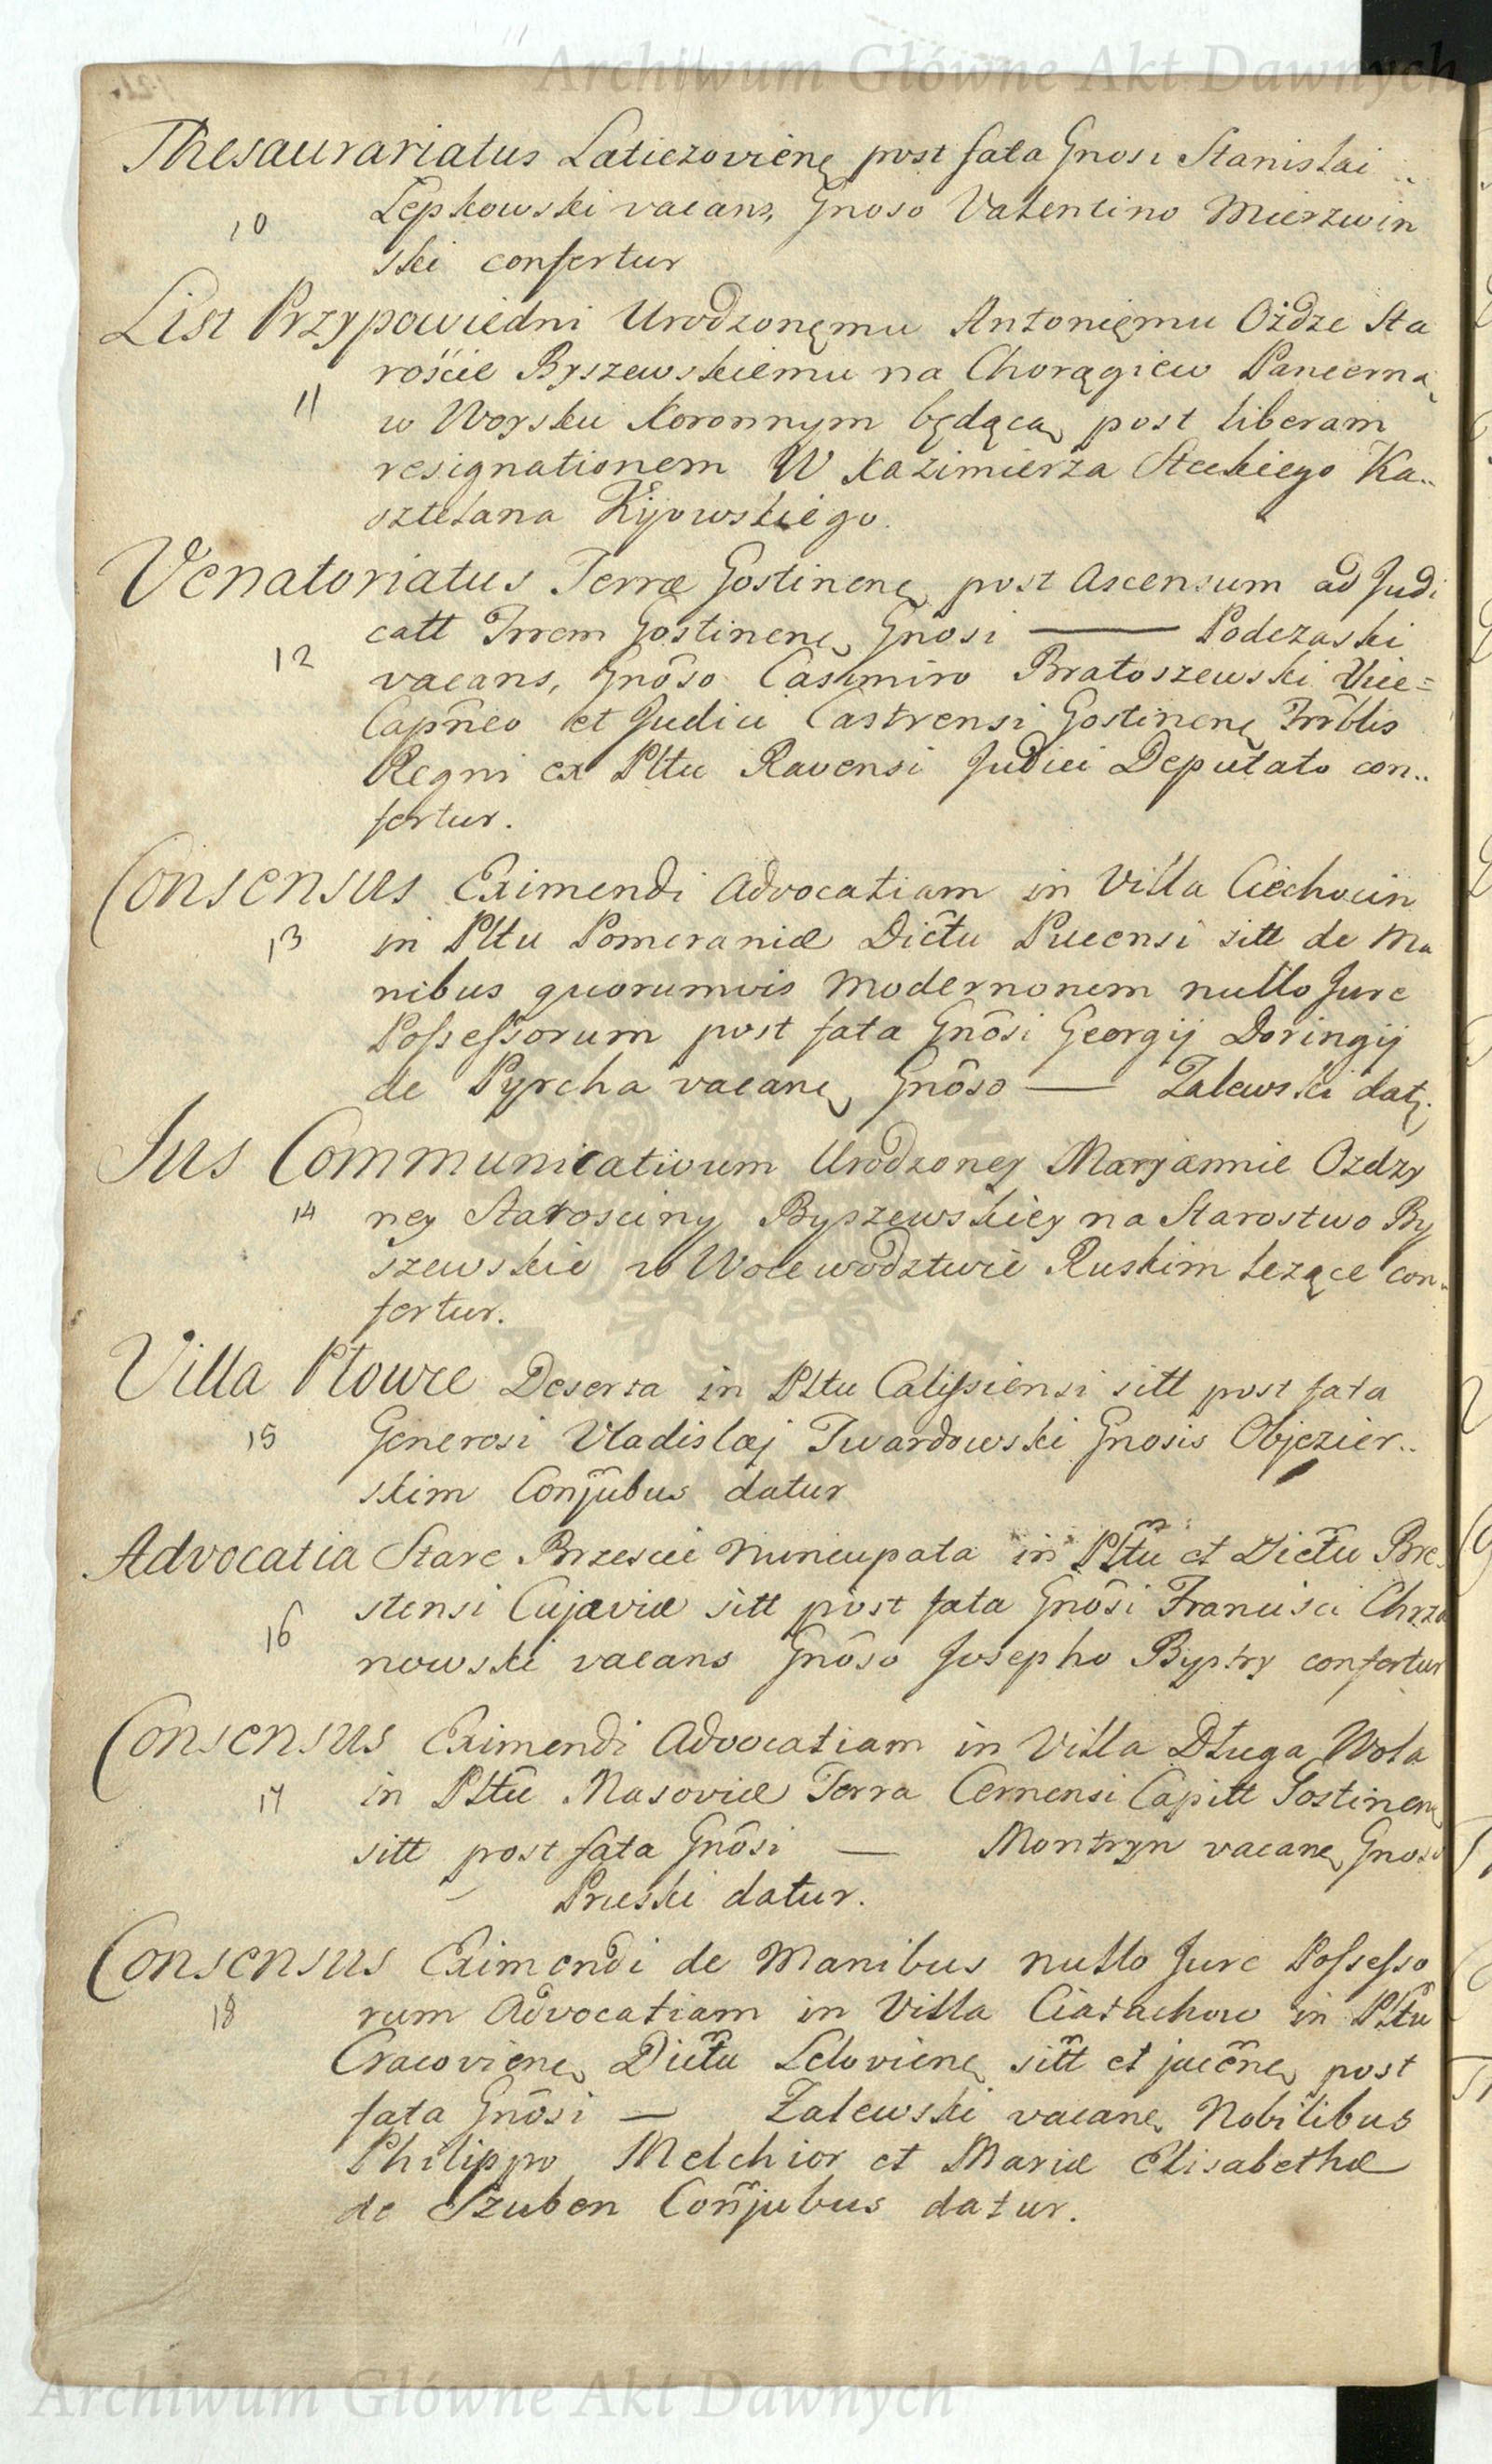 Archiwum Główne Akt Dawnych
Thesaurariatus Laticzovienę post fata Gnosi Stanislai
10 Łępkowski vacans, Gnoso Valentino Mierzwin
ski confertur
List Przypowiedni Urodzonęmu Antonięmu Ożdze Sta
rościе Byszewskiemu na Chorągiew Pancerną
11
w Woysku Koronnym będącą post liberam
resignationem W Kazimierza Steckiego Ka..
sztelana Kijowskiego.
Venatoriatus Terræ Gostinenę post Ascensum ad Judi
catt Trrem Gostinenę Gnosi — Podczaski
12
vacans, Gnôso Casimiro Bratoszewski Vice=
Capn̄eo et Judici Castrensi Gostinenę Trrblis
Regni ex Pltu Ravensi Judici Deputato con..
fertur.
Consensus Eximendi Advocatiam in Villa Ciechocin
13 in Pltu Pomeraniæ Dictu Pucensi sitt de Ma
nibus quorumvis Modernorum nullo Jure
Possessorum post fata Gnôsi Georgij Doringij
de Pyrcha vacanę Gnôso — Zalewski datę.
Jus Communicativum Urodzoney Maryannie Ozdzy
14 ney Starosciny Byszewskiey na Starostwo By
szewskie w Woiewodztwie Ruskim leżące con..
fertur.
Villa Płowce Deserta in Pltu Calissiensi sitt post fata
15 Generosi Vladislaj Twardowski Gnosis Objezier..
skim Conjubus datur
Advocatia Stare Brzescie Nuncupata in Pltu et Dictu Bre
stensi Cujaviæ sitt post fata Gnôsi Francisci Chrza
16
nowski vacans Gnôso Josepho Bystry confertur
Consensus Eximendi Advocatiam in Villa Długa Wola
17 in Pltu Masoviæ Terra Cernensi Capitt Gostinenę
sitt post fata Gnôsi — Montrzyn vacanę Gnoso
— Pruski datur.
Consensus Eximendi de Manibus nullo Jure Possesso
18 rum Advocatiam in Villa Ciarachow in Pltu
Cracovienę Dictu Lelovienę sitt et jacēnę post
fata Gnôsi — Zalewski vacanę Nobilibus
Philippo Melchior et Mariæ Elisabethæ
de Szuben Conjubus datur.
Archiwum Główne Akt Dawnych